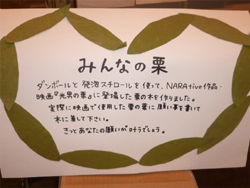 みんなの栗
ダンボールと発泡スチロールを使って、NARAtive作品
映画『光男の栗』に登場した栗の木を作りました。
実際に映画で使用した栗の葉に願い事を書いて
木に差して下さい。
きっとあなたの願いがカナうでしょう。